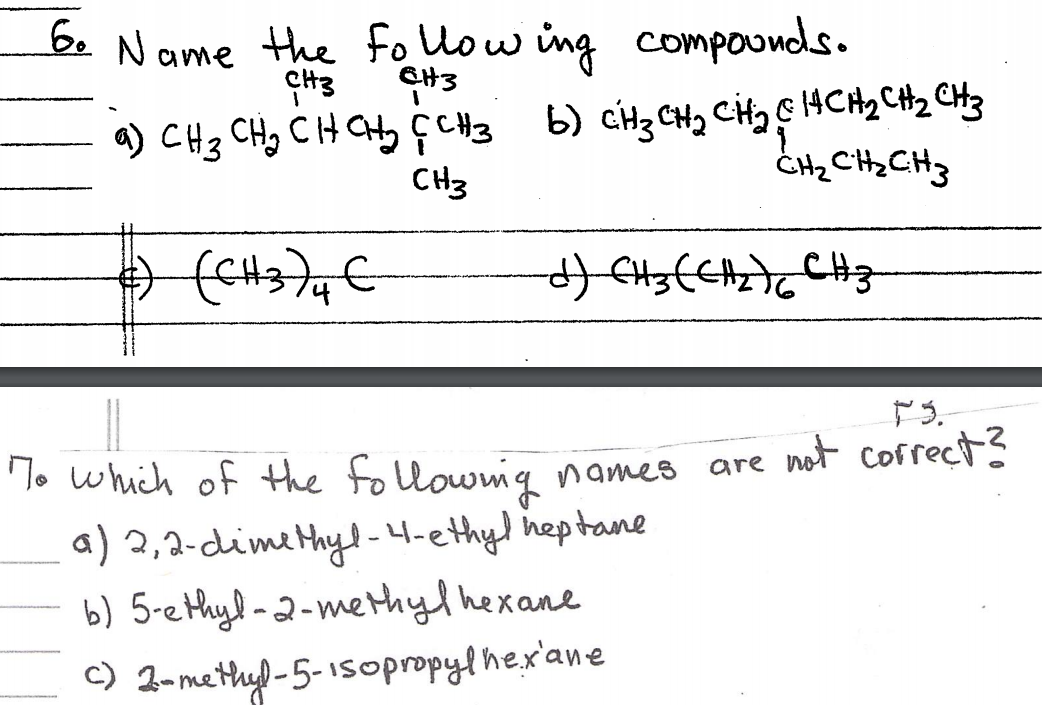 6. Name the following compounds.
CH3 CH3
a) CH3 CH2 CH CH2 C CH3 b) CH3 CH2 CH2 CHCH2 CH2 CH3
CH3 CH2 CH2 CH3
c) (CH3)4 C d) CH3(CH2)6 CH3
7. Which of the following names are not correct?
a) 2,2-dimethyl-4-ethyl heptane
b) 5-ethyl-2-methyl hexane
c) 2-methyl-5-isopropyl hexane